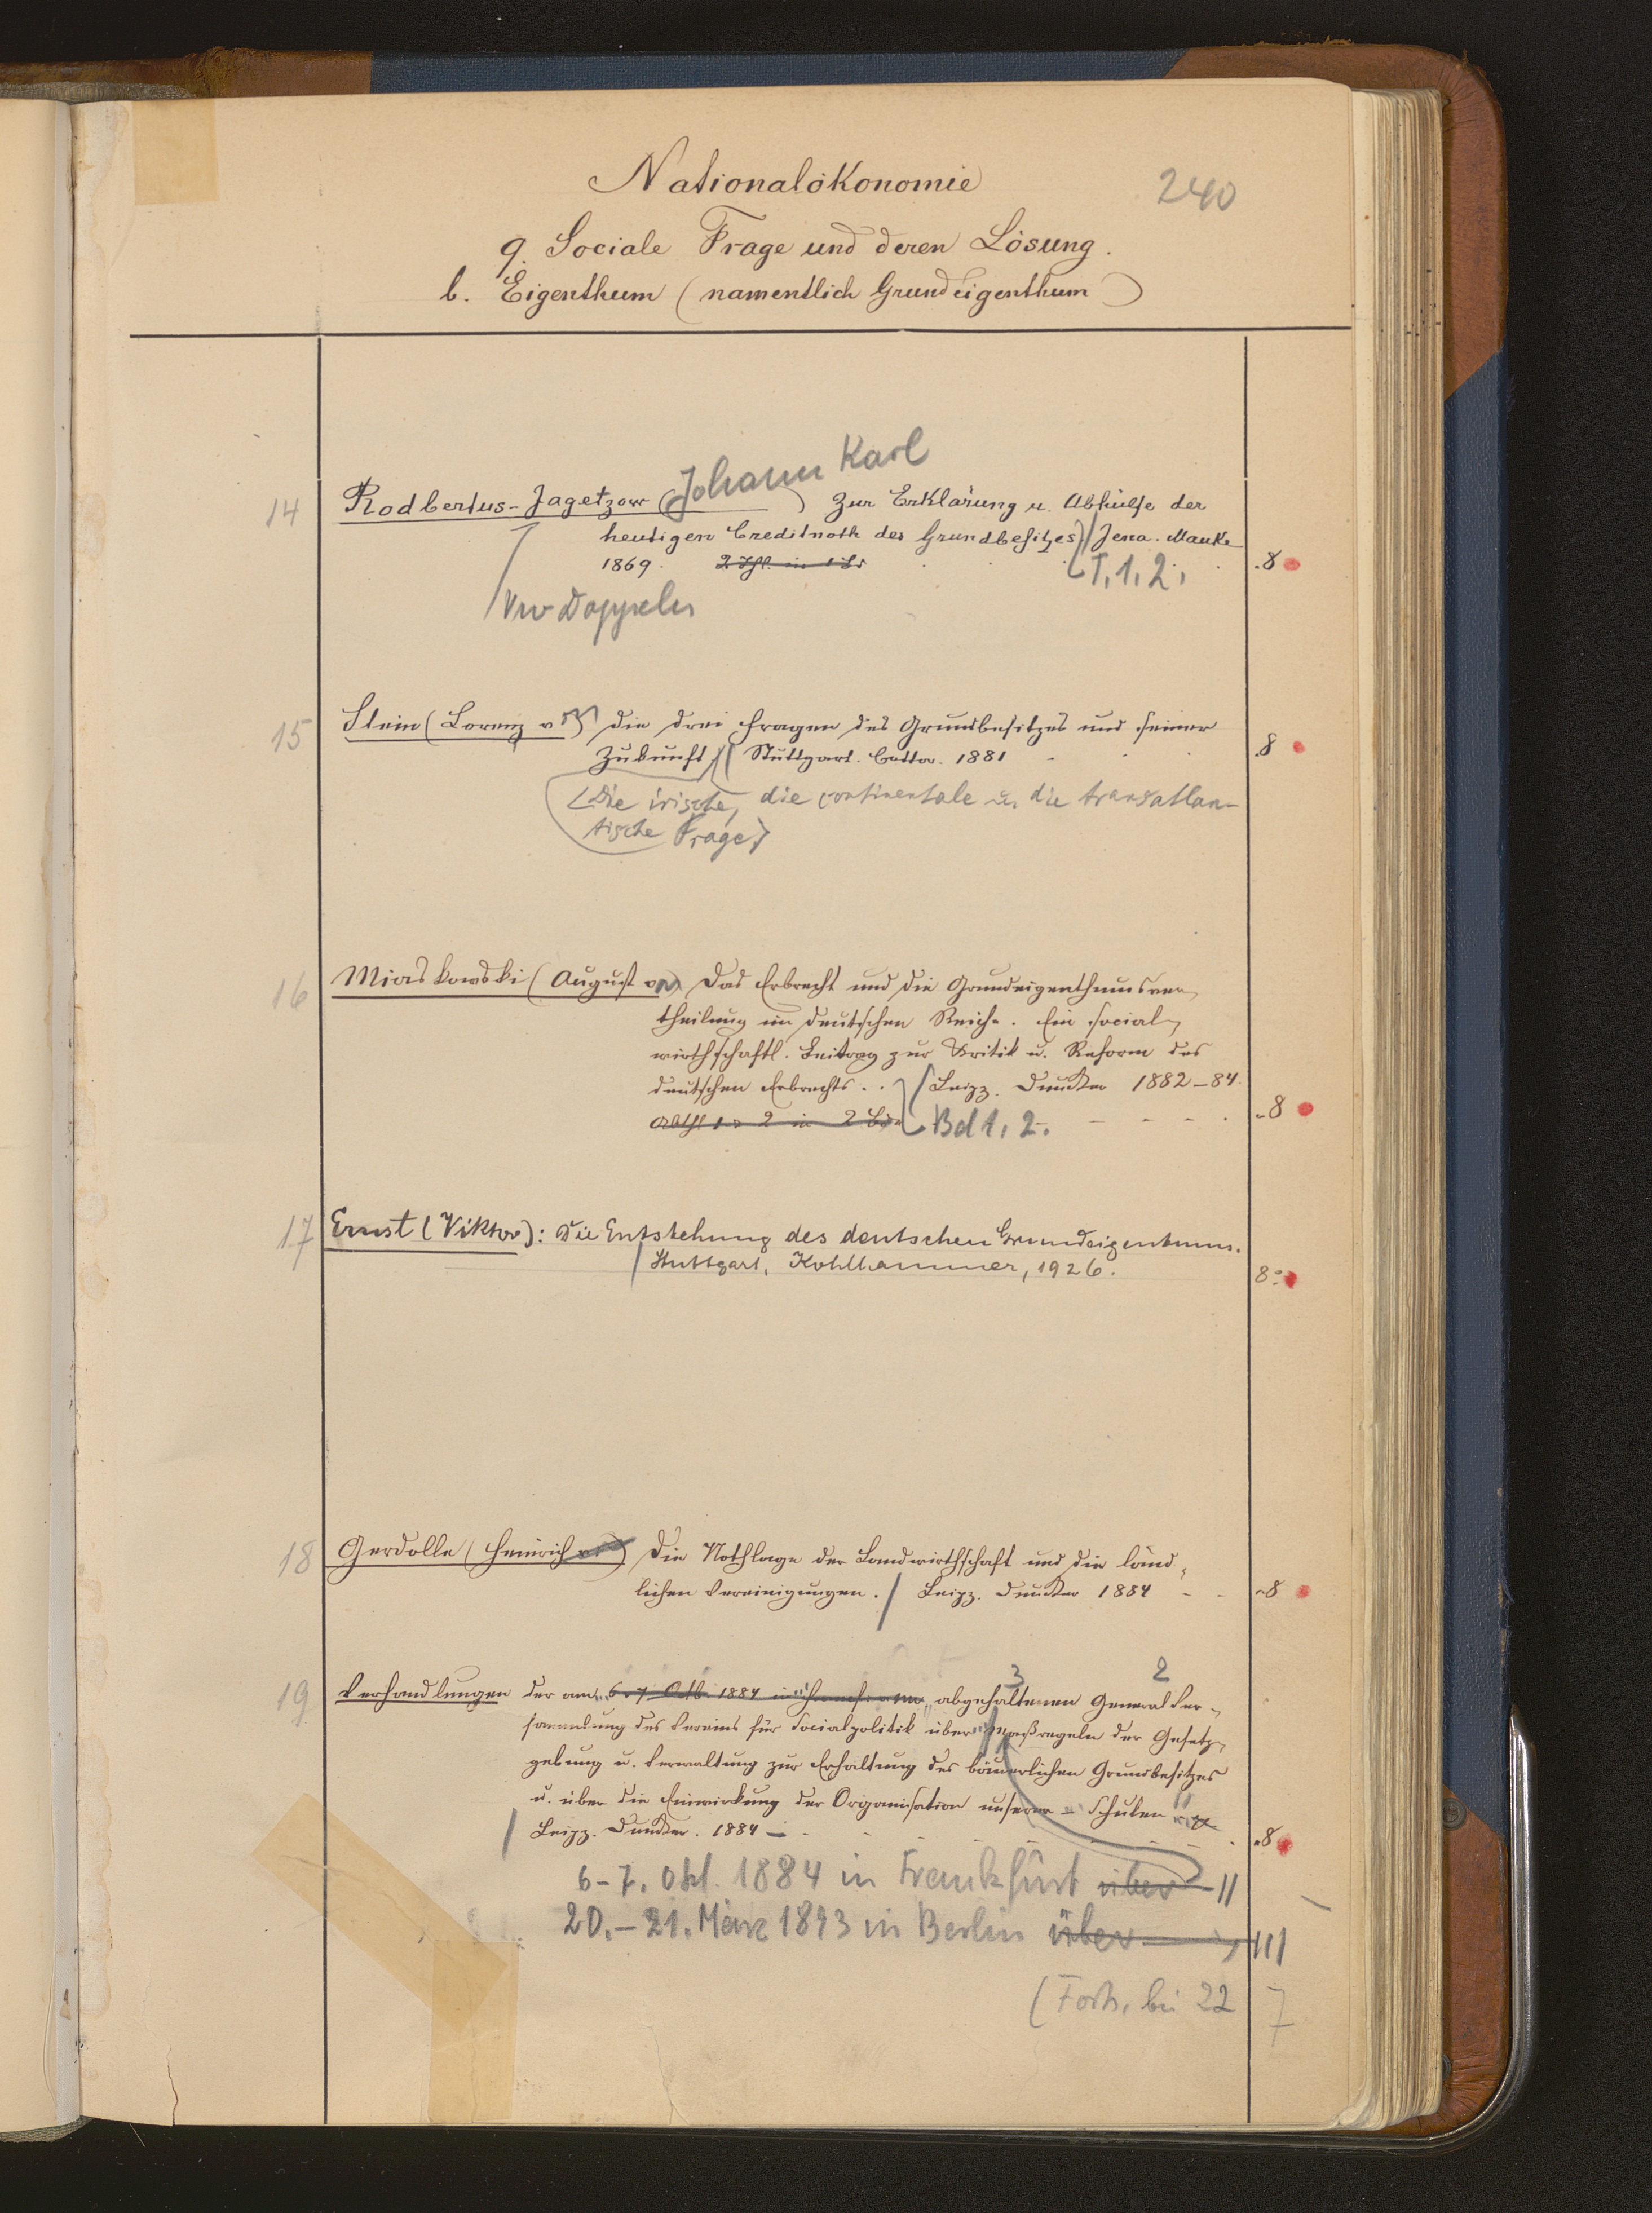 Nationalökonomie
240
q. Sociale Frage und deren Lösung.
b. Eigenthum (namentlich Grundeigenthum)
Johann Karl
14 Rodbertus-Jagetzow ( ) Zur Erklärung u. Abhülfe der
heutigen Creditnoth des Grundbesitzes / Jena. Mauke
1869. 2 Thl. in 1 Bd T. 1. 2. 8
15 Stein (Lorenz von) Die drei Fragen des Grundbesitzes und seiner
Zukunft / ( Stuttgart. Cotta. 1881 8
<Die irische, die continentale u. die transatlan-
tische Frage>
16 Miaskowski (August von) Das Erbrecht und die Grundeigenthumsver-
theilung im deutschen Reiche. Ein social-
wirthschaftl. Beitrag zur Kritik u. Reform des
deutschen Erbrechts. . / Leipz. Duncker 1882-84.
Abthl 1 u 2 in 2 Bde Bd 1. 2. 8
17 Ernst (Viktor): Die Entstehung des deutschen Grundeigentums.
/ Stuttgart, Kohlhammer, 1926. 8°
18 Gerdolle (Heinrich ) Die Nothlage der Landwirthschaft und die länd-
lichen Vereinigungen. / Leipz. Duncker 1884 8
3 2
19 Verhandlungen der am 6 u 7 Octb. 1884 in abgehaltenen General Ver-
sammlung des Vereins für Socialpolitik über Maßregeln der Gesetz-
gebung u. Verwaltung zur Erhaltung des bäuerlichen Grundbesitzes
u. über die Einwirkung der Organisation unserer Schulen
/ Leipz. Duncker. 1884 8
6-7. Okt. 1884 in Frankfurt über
20.-21. März 1893 in Berlin über
(Forts. bei 22